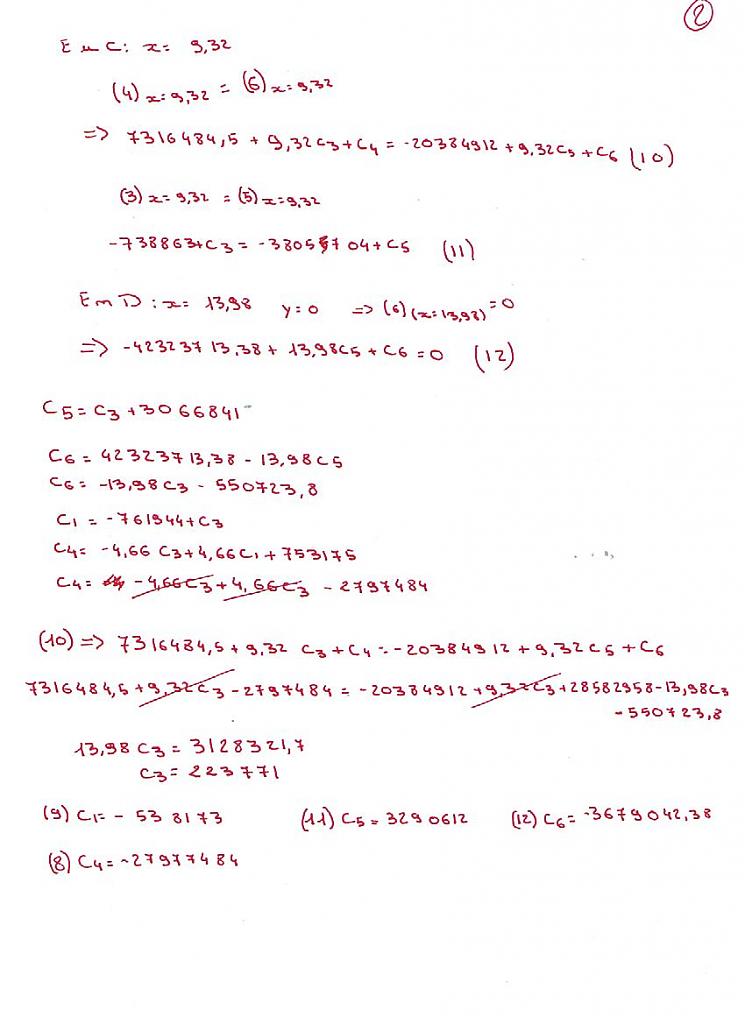 2
Em C: x= 9,32
(4) x=9,32 = (6) x=9,32
=> 7316484,5 + 9,32C3+C4 = -20384912 + 9,32C5 + C6 (10)
(3) x=9,32 = (5) x=9,32
-738863+C3 = -3805704+C5 (11)
Em D: x= 13,98 y=0 => (6)(x=13,98)=0
=> -42323713,38 + 13,98C5 + C6 = 0 (12)
C5 = C3 + 3066841
C6 = 42323713,38 - 13,98C5
C6 = -13,98C3 - 550723,8
C1 = -761944+C3
C4= -4,66 C3+4,66C1 + 753175
C4 = -4,66C3 + 4,66C3 - 2797484
(10) => 7316484,5 + 9,32 C3 + C4 = -20384912 + 9,32C5 + C6
7316484,5 + 9,32C3 - 2797484 = -20384912 + 9,32C3 + 28582958 - 13,98C3
- 550723,8
13,98 C3 = 3128321,7
C3 = 223771
(9) C1 = - 538173 (11) C5 = 3290612 (12) C6 = -3679042,38
(8) C4 = -27977484